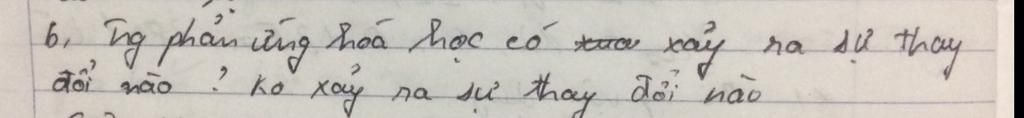 6, Tg phản ứng hoá học có xảy ra sự thay
đổi nào ? Ko xảy ra sự thay đổi nào